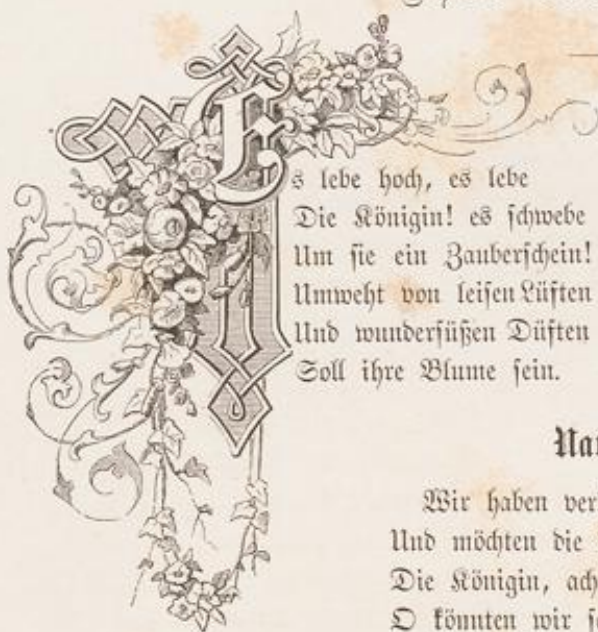 Es lebe hoch, es lebe
Die Königin! es schwebe
Um sie ein Zauberschein!
Umweht von leisen Lüften
Und wundersüßen Düften
Soll ihre Blume sein.
Wir haben
Und möchten die
Die Königin,
O könnten wir